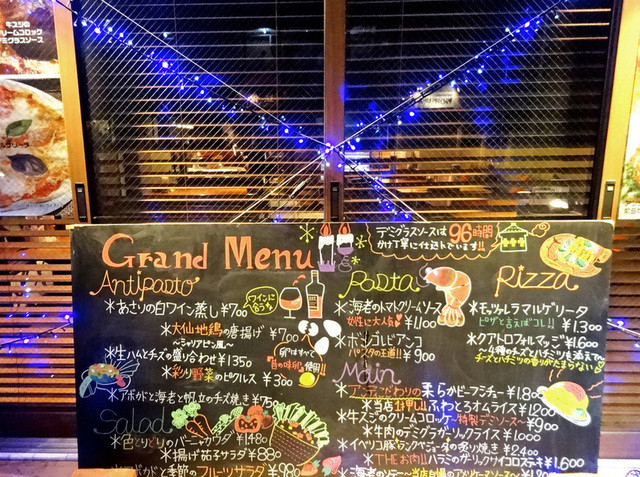 牛スジの
クリームコロッケ
デミグラスソース
デミグラスソースは96時間
かけ丁寧に仕込んでいます!!
Grand Menu
Antipasto
*あさりの白ワイン蒸し ¥700
ワインに合うな
*大仙地鶏の唐揚げ ¥700
*生ハムとチーズの盛り合わせ ¥1350
*彩り野菜のピクルス ¥300
卵はすべて
使用!!
*アボカドと海老と帆立のチーズ焼き ¥750
Salad
*色とりどりのバーニャカウダ ¥1480
*揚げ茄子サラダ ¥880
*アボカドと季節のフルーツサラダ ¥980
Pasta
*海老のトマトクリームソース
女性に大人気 ¥1,100
*ボンゴレビアンコ
パスタの王道!! ¥900
Main
こだわりの柔らかビーフシチュー ¥1,800
*当店1押し!!ふわとろオムライス ¥1,200
*牛スジのクリームコロッケ~特製デミソース~ ¥900
*牛肉のデミガーリックライス ¥1,000
*イベリコ豚 の炙り焼き ¥2,400
*THEお肉!!ハラミのガーリックサイコロステーキ ¥1,600
Pizza
*モッツァレラマルゲリータ
ピザと言えばコレ!! ¥1,300
*クアトロフォルマッジ ¥1,600
~4種のチーズとハチミツを添えて~
チーズとハチミツの香りがたまらない